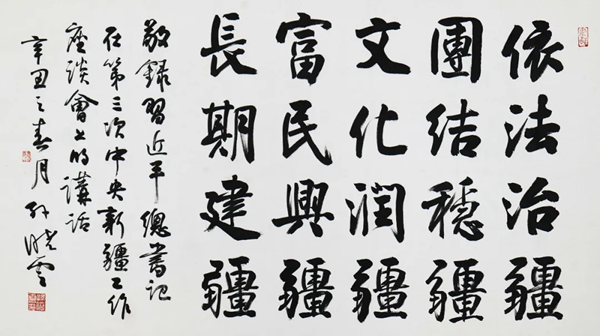 依法治疆
團结穩疆
文化潤疆
富民興疆
長期建疆
敬録習近平總書记
在第三次中央新疆工作
座谈會上的講话
辛丑之春月孙晓雲